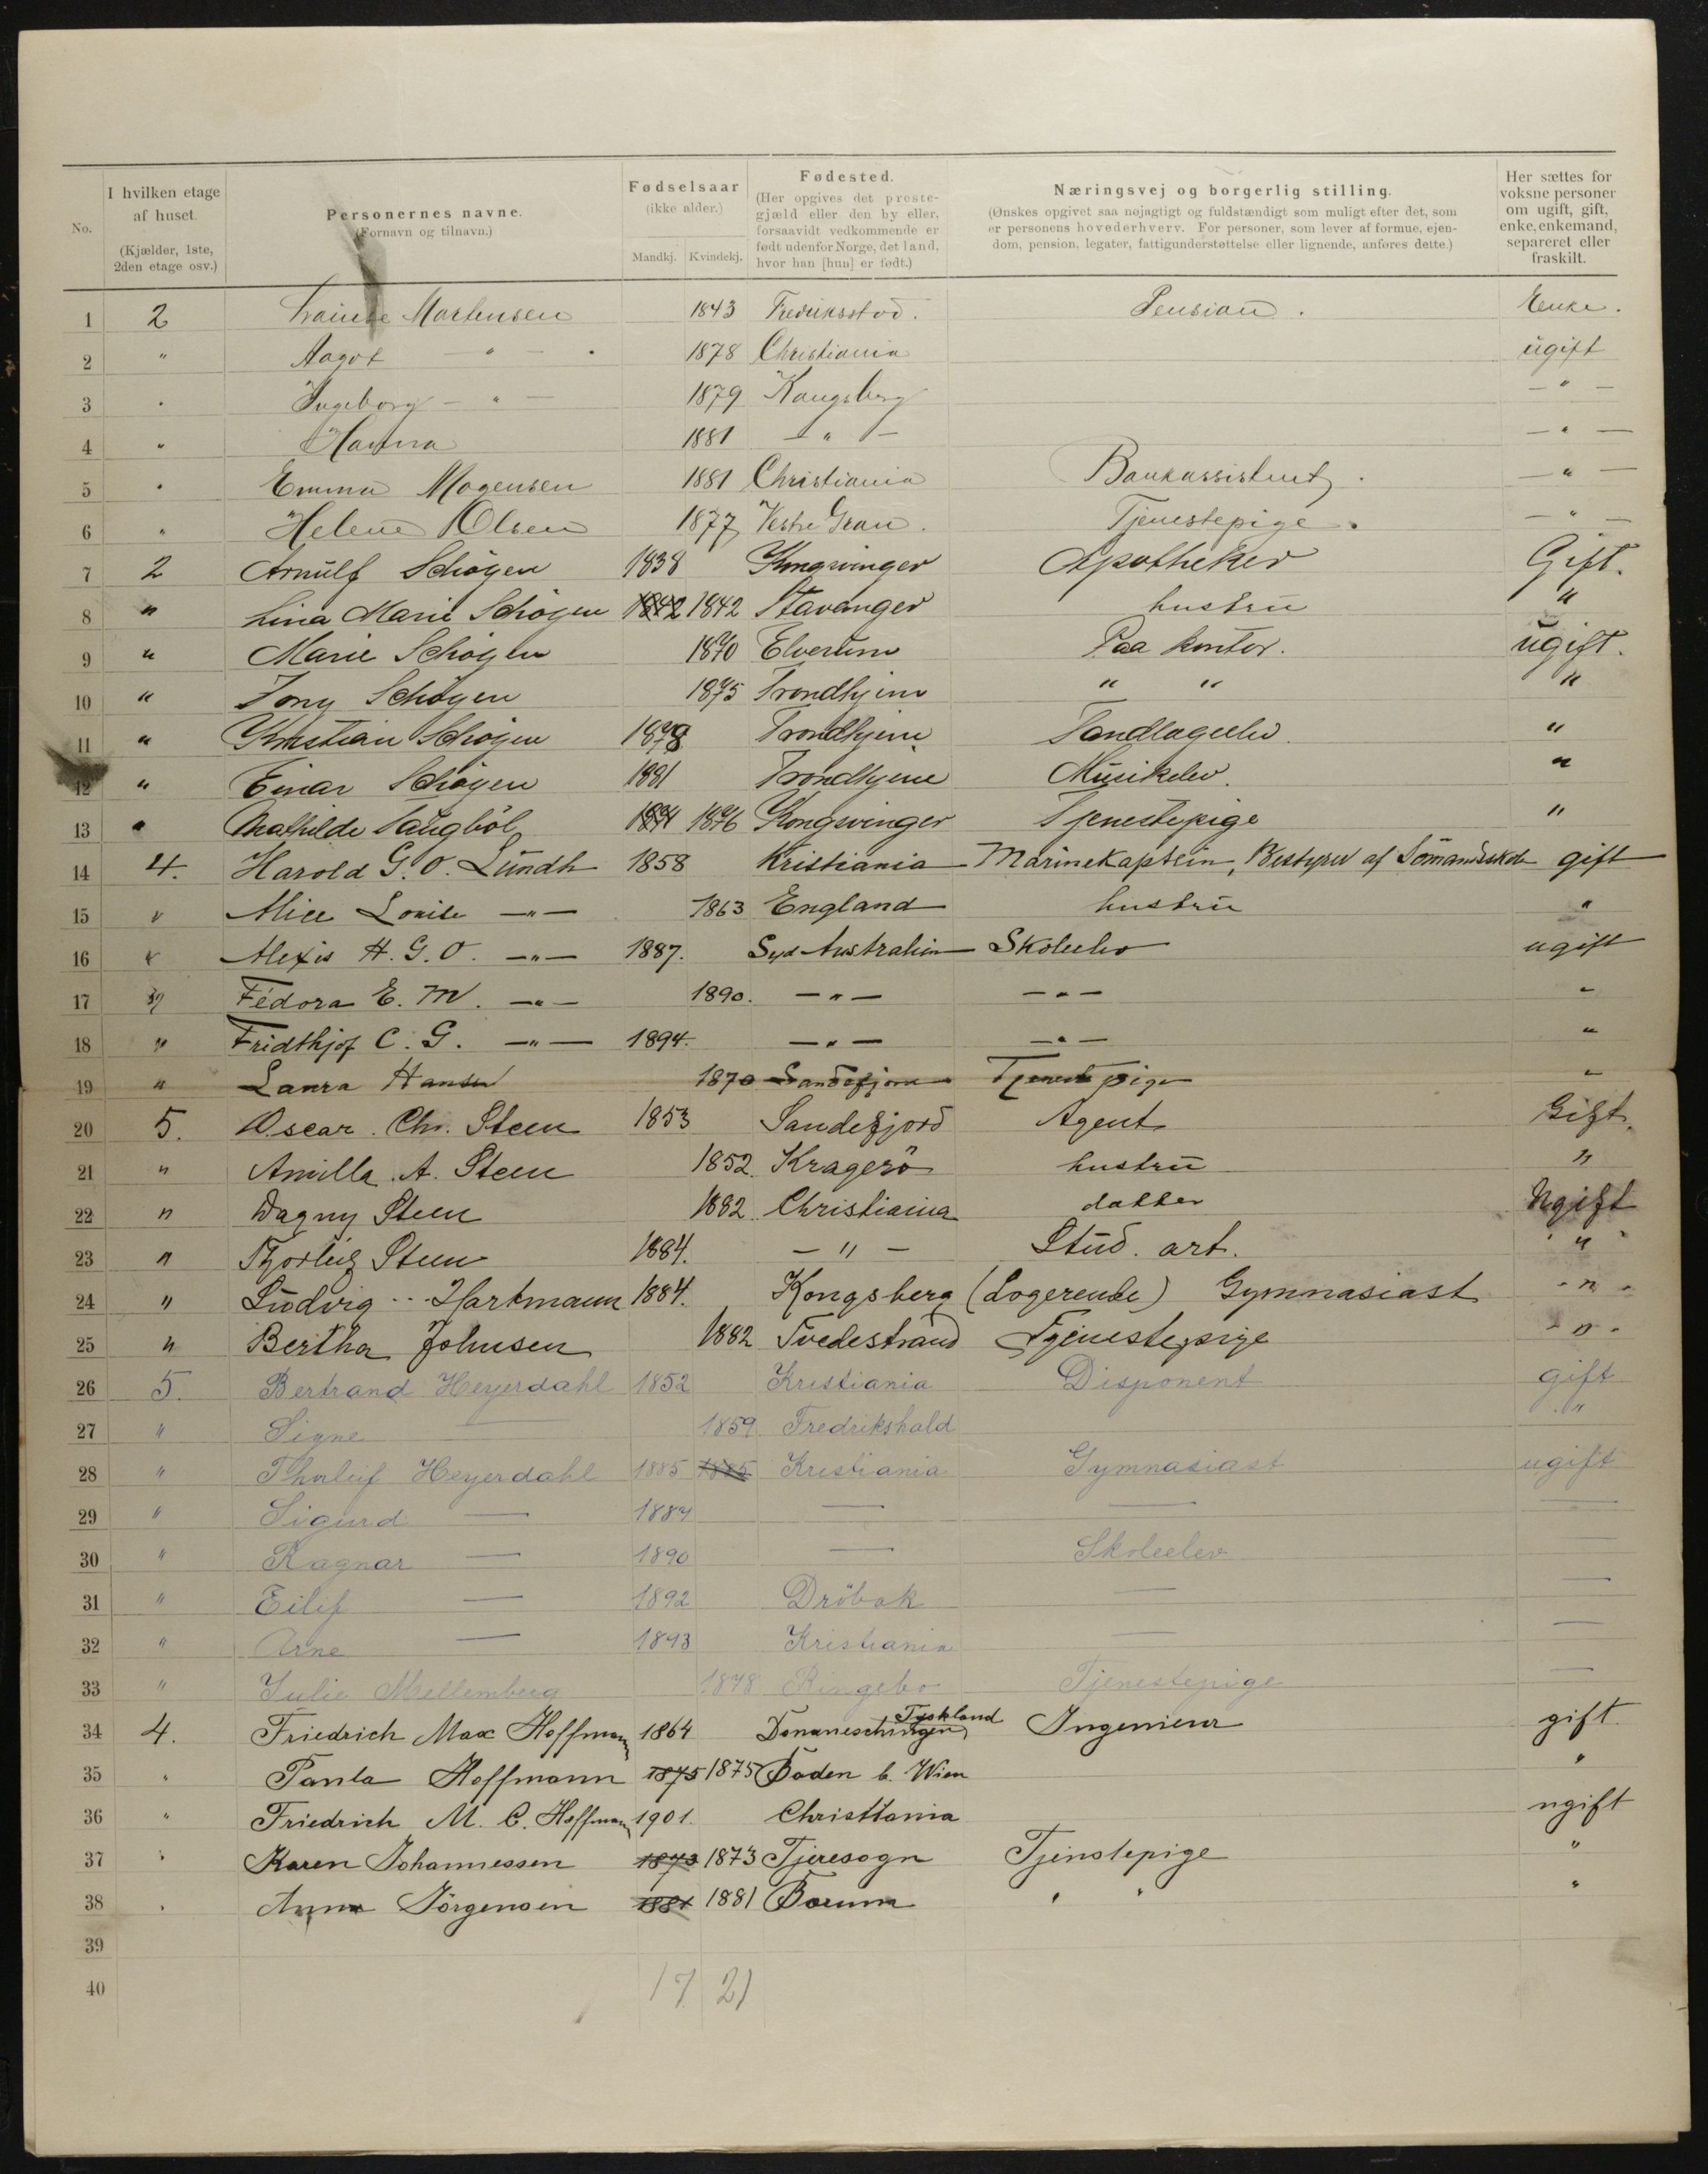 No.
I hvilken etage af huset. (Kjælder, 1ste, 2den etage osv.)
Personernes navne. (Fornavn og tilnavn.)
Fødselsaar (ikke alder.) Mandkj. Kvindekj.
Fødested. (Her opgives det prestegjæld eller den by eller, forsaavidt vedkommende er født udenfor Norge, det land, hvor han [hun] er født.)
Næringsvej og borgerlig stilling. (Ønskes opgivet saa nøjagtigt og fuldstændigt som muligt efter det, som er personens hovederhverv. For personer, som lever af formue, ejendom, pension, legater, fattigunderstøttelse eller lignende, anføres dette.)
Her sættes for voksne personer om ugift, gift, enke, enkemand, separeret eller fraskilt.
1 2 Martensen 1843 Fredriksstad. Pension. Enke.
2 " Aagot — " — 1878 Christiania ugift
3 " Ingeborg — " — 1879 Kongsberg — " —
4 " Hanna 1881 — " — — " —
5 " Emma Mogensen 1881 Christiania Bankassistent. — " —
6 " Helene Olsen 1877 Vestre Gran. Tjenestepige. — " —
7 2 Arnulf Schøyen 1838 Kongsvinger Apotheker Gift.
8 " Lina Marie Schøyen 1842 1842 Stavanger hustru "
9 " Marie Schøyen 1870 Elverum Paa kontor. ugift.
10 " Tony Schøyen 1875 Trondhjem " " "
11 " Kristian Schøyen 1878 Trondhjem Tandlægeelev "
12 " Einar Schøyen 1881 Trondhjem Musikelev. "
13 " Mathilde 1876 Kongsvinger Tjenestepige "
14 4. Harold G. O. Lundh 1858 Kristiania Marinekaptein, Bestyrer af Sömandsskole gift
15 " Alice Louise —"— 1863 England hustru "
16 " Alexis H. G. O. —"— 1887. Syd Australien Skoleelev ugift
17 " Fédora E. M. —"— 1890. —"— —"— "
18 " Fridthjof C. G. —"— 1894. —"— —"— "
19 " Laura Hansen 1870 Sandefjord Tjenestepige "
20 5. Oscar. Chr. Steen 1853 Sandefjord Agent Gift.
21 " Amilla. A. Steen 1852. Kragerö hustru "
22 " Dagny Steen 1882. Christiania datter Ugift
23 " Thorleif Steen 1884. — " — Stud. art. "
24 " Ludvig Hartmann 1884. Kongsberg (Logerende) Gymnasiast "
25 " Bertha Johnsen 1882 Tvedestrand Tjenestepige "
26 5. Bertrand Heyerdahl 1852 Kristiania Disponent gift
27 " Signe — 1859 Fredrikshald "
28 " Thorleif Heyerdahl 1885 1885 Kristiania Gymnasiast ugift
29 " Sigurd — 1887 — — —
30 " Ragnar — 1890 — Skoleelev —
31 " Eilif — 1892 Dröbak — —
32 " Arne — 1893 Kristiania — —
33 " Julie Mellemberg 1878 Ringebo Tjenestepige —
34 4. Friedrich Max Hoffmann 1864 Donaueschingen, Tyskland Ingenieur gift.
35 " Paula Hoffmann 1875 1875 Baden b. Wien "
36 " Friedrich M. C. Hoffmann 1901. Christiania ugift
37 " Karen Johannessen 1873 1873 Tjenstepige "
38 " Anna Jörgensen 1881 1881 Bærum " " "
39
40 17 21